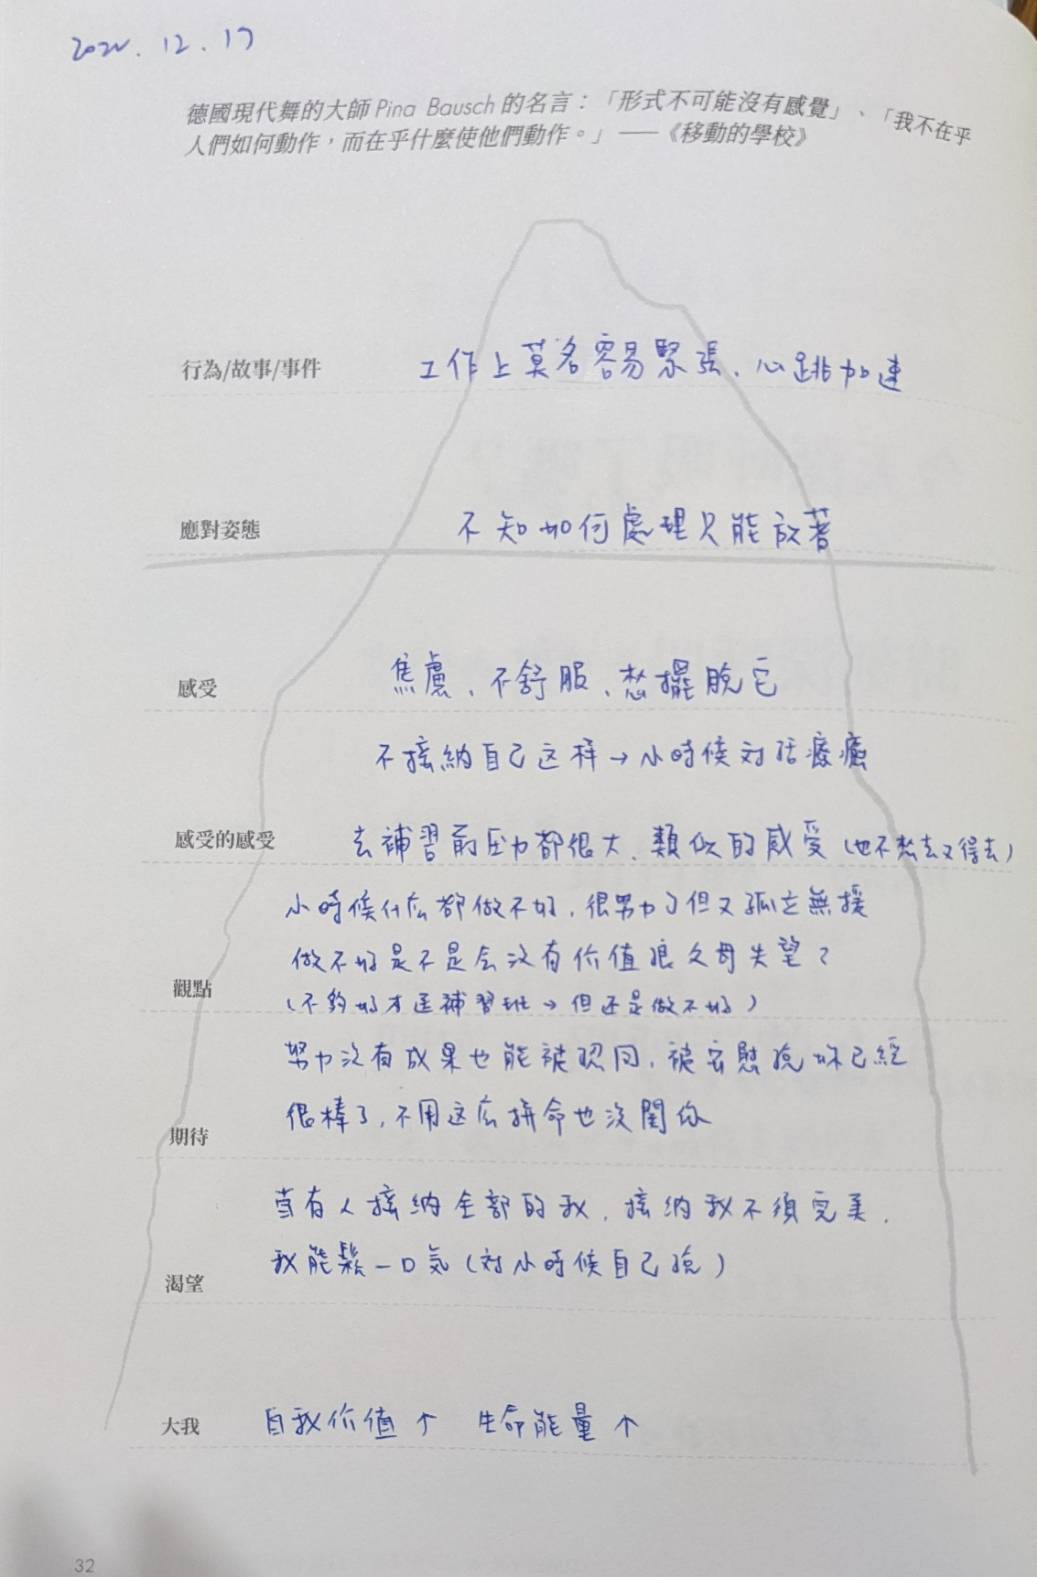 2022.12.17
德國現代舞的大師 Pina Bausch 的名言：「形式不可能沒有感覺」、「我不在乎
人們如何動作，而在乎什麼使他們動作。」——《移動的學校》
行為/故事/事件 工作上莫名容易緊張、心跳加速
應對姿態 不知如何處理只能放著
感受 焦慮、不舒服、想擺脫它
不接納自己这样→小時候对話療癒
感受的感受 去補習前压力都很大、類似的感受（也不想去又得去）
小時候什么都做不好，很努力了但又孤立無援
做不好是不是会没有价值讓父母失望？
觀點 （不夠好才送補習班→但还是做不好）
努力没有成果也能被認同，被安慰說妳已經
很棒了，不用这么拼命也没關係
期待
當有人接納全部的我，接納我不須完美，
我能鬆一口気（对小時候自己說）
渴望
大我 自我价值↑ 生命能量↑
32